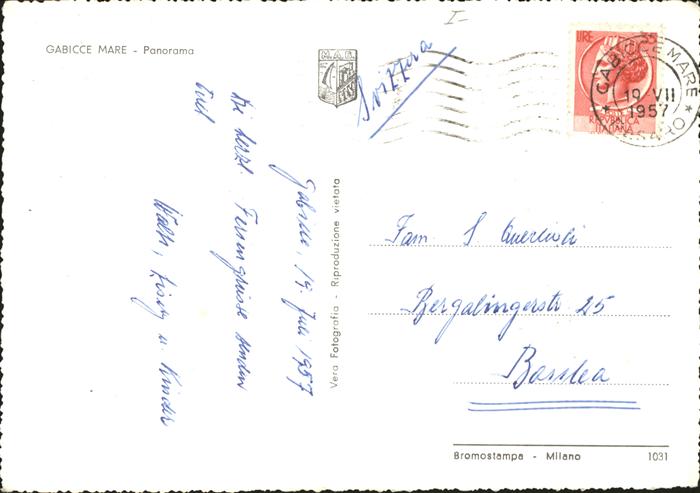 I-
GABICCE MARE - Panorama
M.A.R.
Svizzera
LIRE
REPUBBLICA
ITALIANA
GABICCE MARE
19 VII
1957
PESARO
Gabicce, 19. Juli 1957
Die herzl. Feriengrüsse senden
Euch
Walti, u Kinder
Vera Fotografia - Riproduzione vietata
Fam. S.
Bergalingerstr 25
Basilea
Bromostampa - Milano
1031